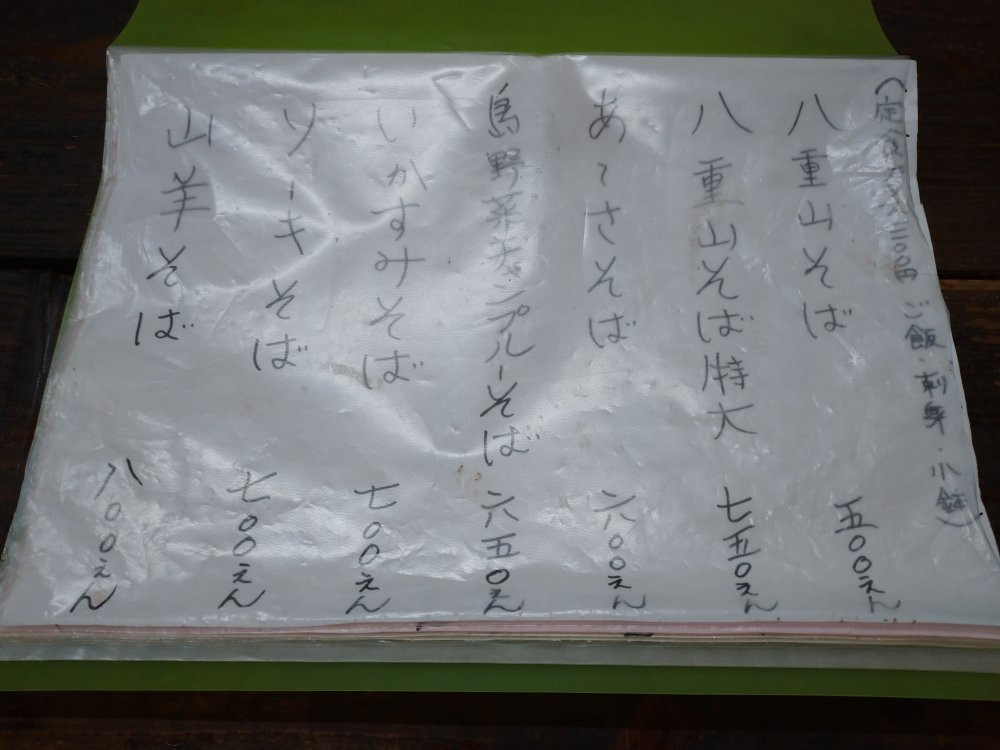 (定食 三〇〇円 ご飯・刺身・小鉢)
八重山そば 五〇〇えん
八重山そば特大 七五〇えん
あ〻さそば 六〇〇えん
島野菜チャンプルーそば 六五〇えん
いかすみそば 七〇〇えん
ソーキそば 七〇〇えん
山羊そば 八〇〇えん